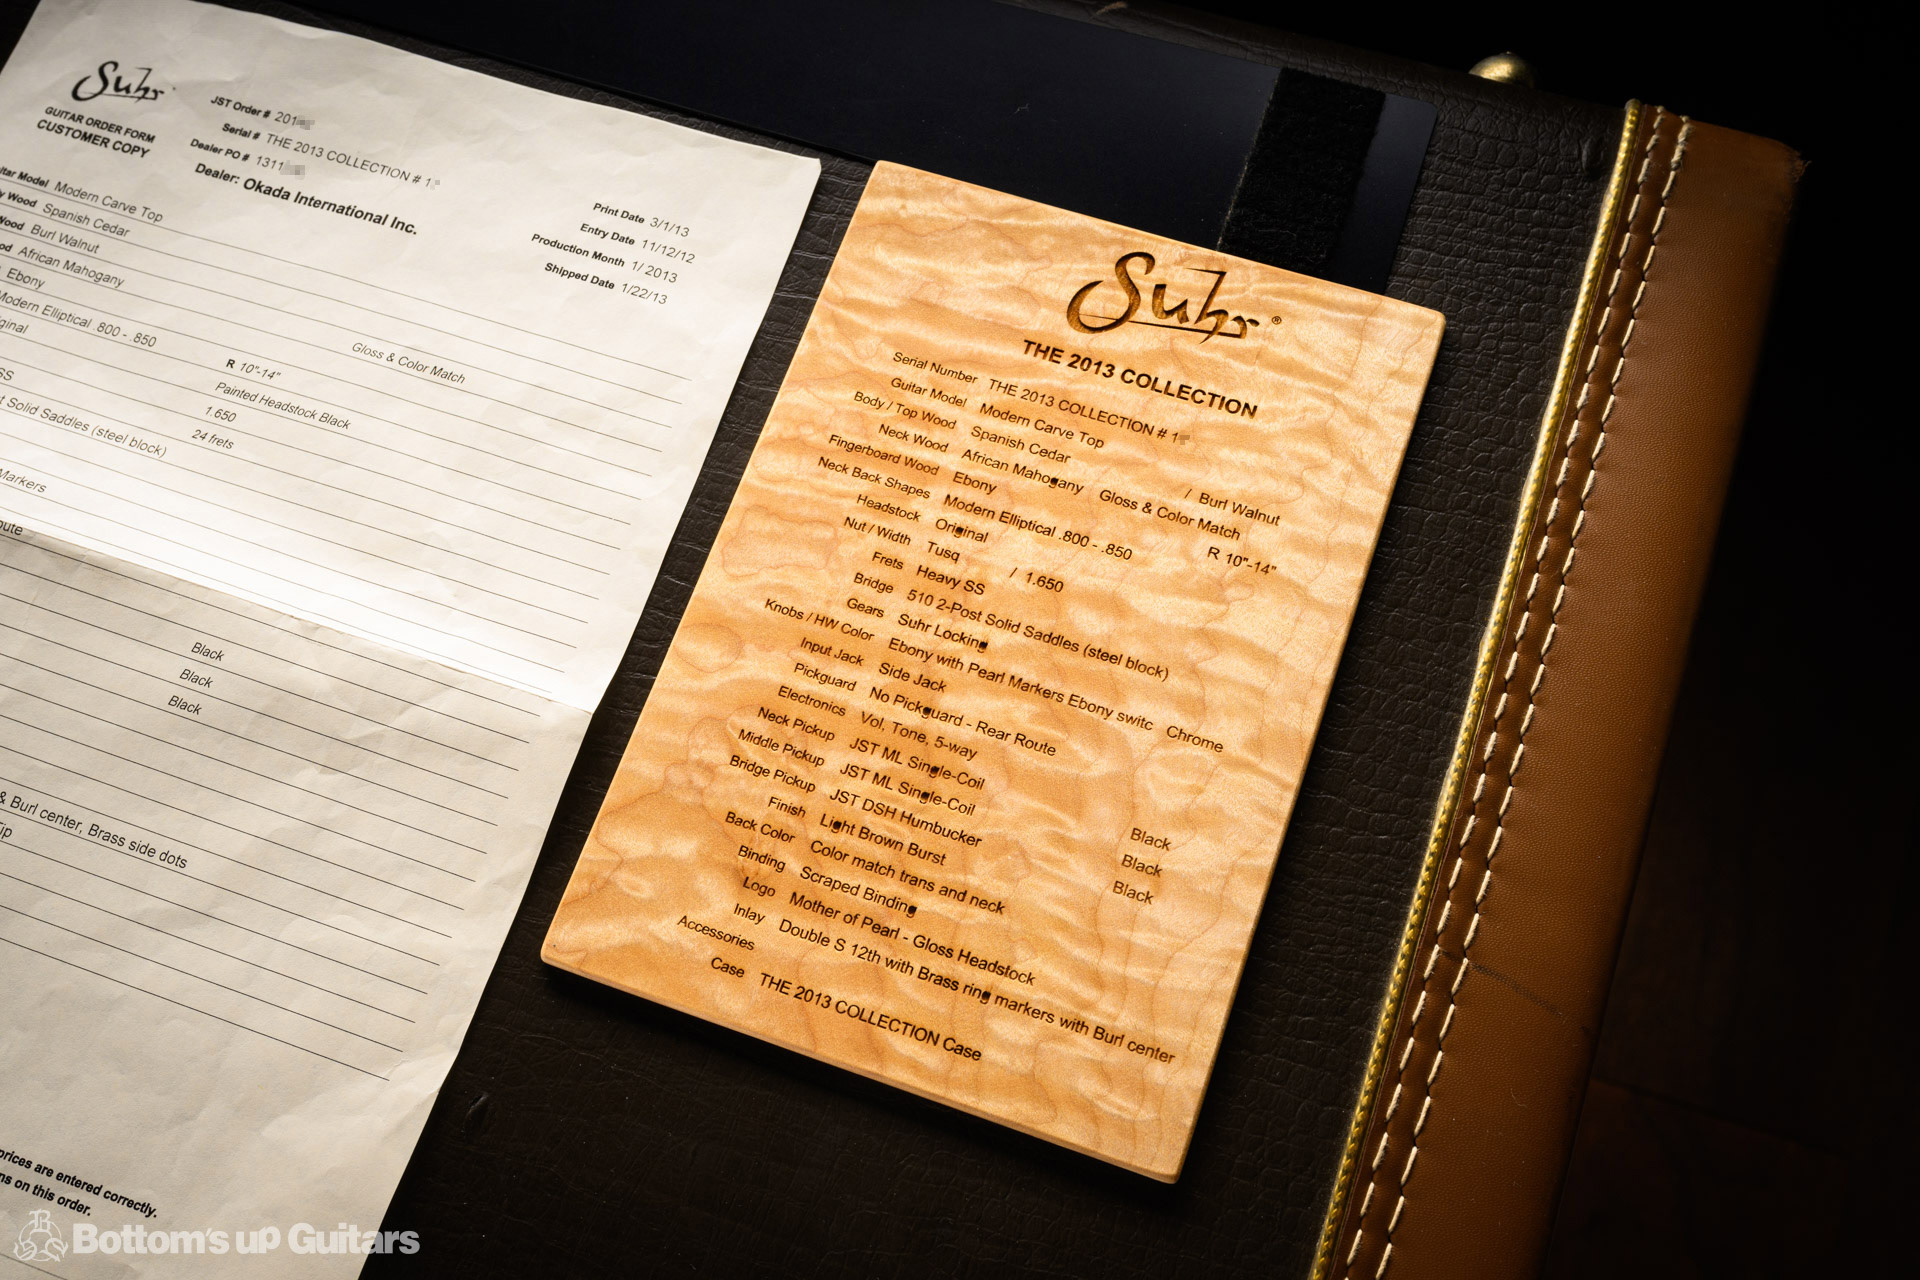 Suhr
GUITAR ORDER FORM
CUSTOMER COPY
JST Order # 201
Serial # THE 2013 COLLECTION # 1
Dealer PO # 1311
Dealer: Okada International Inc.
Print Date 3/1/13
Entry Date 11/12/12
Production Month 1/ 2013
Shipped Date 1/22/13
Model Modern Carve Top
Wood Spanish Cedar
Burl Walnut
African Mahogany
Gloss & Color Match
Ebony
R 10"-14"
Modern Elliptical .800 - .850
Painted Headstock Black
1.650
SS
24 frets
Solid Saddles (steel block)
Markers
Black
Black
Black
& Burl center, Brass side dots
prices are entered correctly.
on this order.
Suhr®
THE 2013 COLLECTION
Serial Number THE 2013 COLLECTION # 1
Guitar Model Modern Carve Top
Body / Top Wood Spanish Cedar / Burl Walnut
Neck Wood African Mahogany Gloss & Color Match
Fingerboard Wood Ebony R 10"-14"
Neck Back Shapes Modern Elliptical .800 - .850
Headstock Original
Nut / Width Tusq / 1.650
Frets Heavy SS
Bridge 510 2-Post Solid Saddles (steel block)
Gears Suhr Locking
Knobs / HW Color Ebony with Pearl Markers Ebony switc Chrome
Input Jack Side Jack
Pickguard No Pickguard - Rear Route
Electronics Vol, Tone, 5-way
Neck Pickup JST ML Single-Coil Black
Middle Pickup JST ML Single-Coil Black
Bridge Pickup JST DSH Humbucker Black
Finish Light Brown Burst
Back Color Color match trans and neck
Binding Scraped Binding
Logo Mother of Pearl - Gloss Headstock
Inlay Double S 12th with Brass ring markers with Burl center
Accessories
Case THE 2013 COLLECTION Case
Bottom's up Guitars